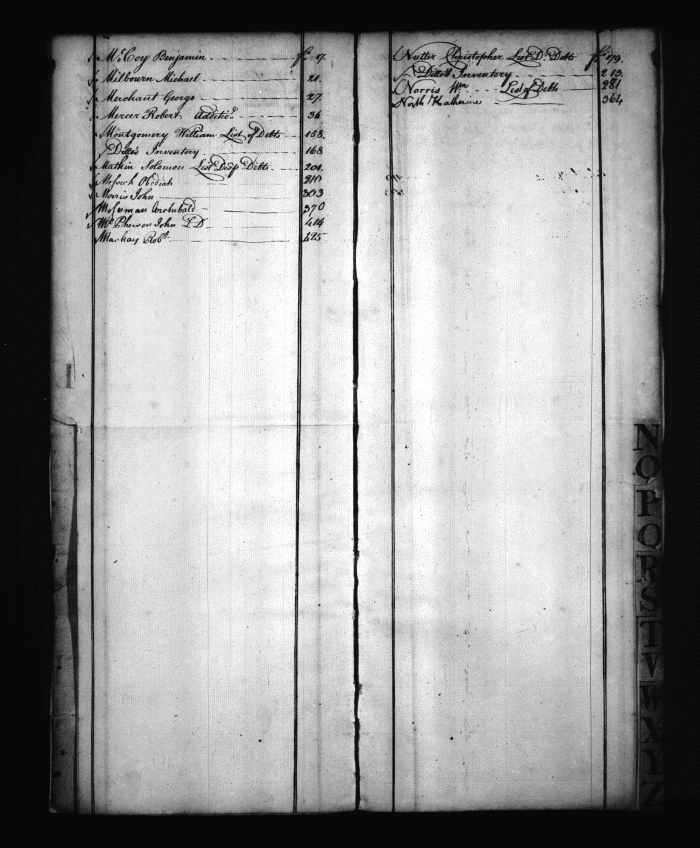 McCoy Benjamin fo. 17.
Milbourn Michael 21.
Merchant George 27.
Mercer Robert Additiol 34
Montgomery William List of Debts 158.
Dittos Inventory 168
Matkin Solomon List Desp Debts 201.
Obediah 210
Morris John 303
Archibald 370
McPherson John L D 414
Mackay Robt 425
Nutter Christopher List D. Debts fo. 179.
Dittos Inventory 213.
Norris Wm List of Debts 281
North Katherine 364
N
O
P
Q
R
S
T
V
W
X
Y
Z